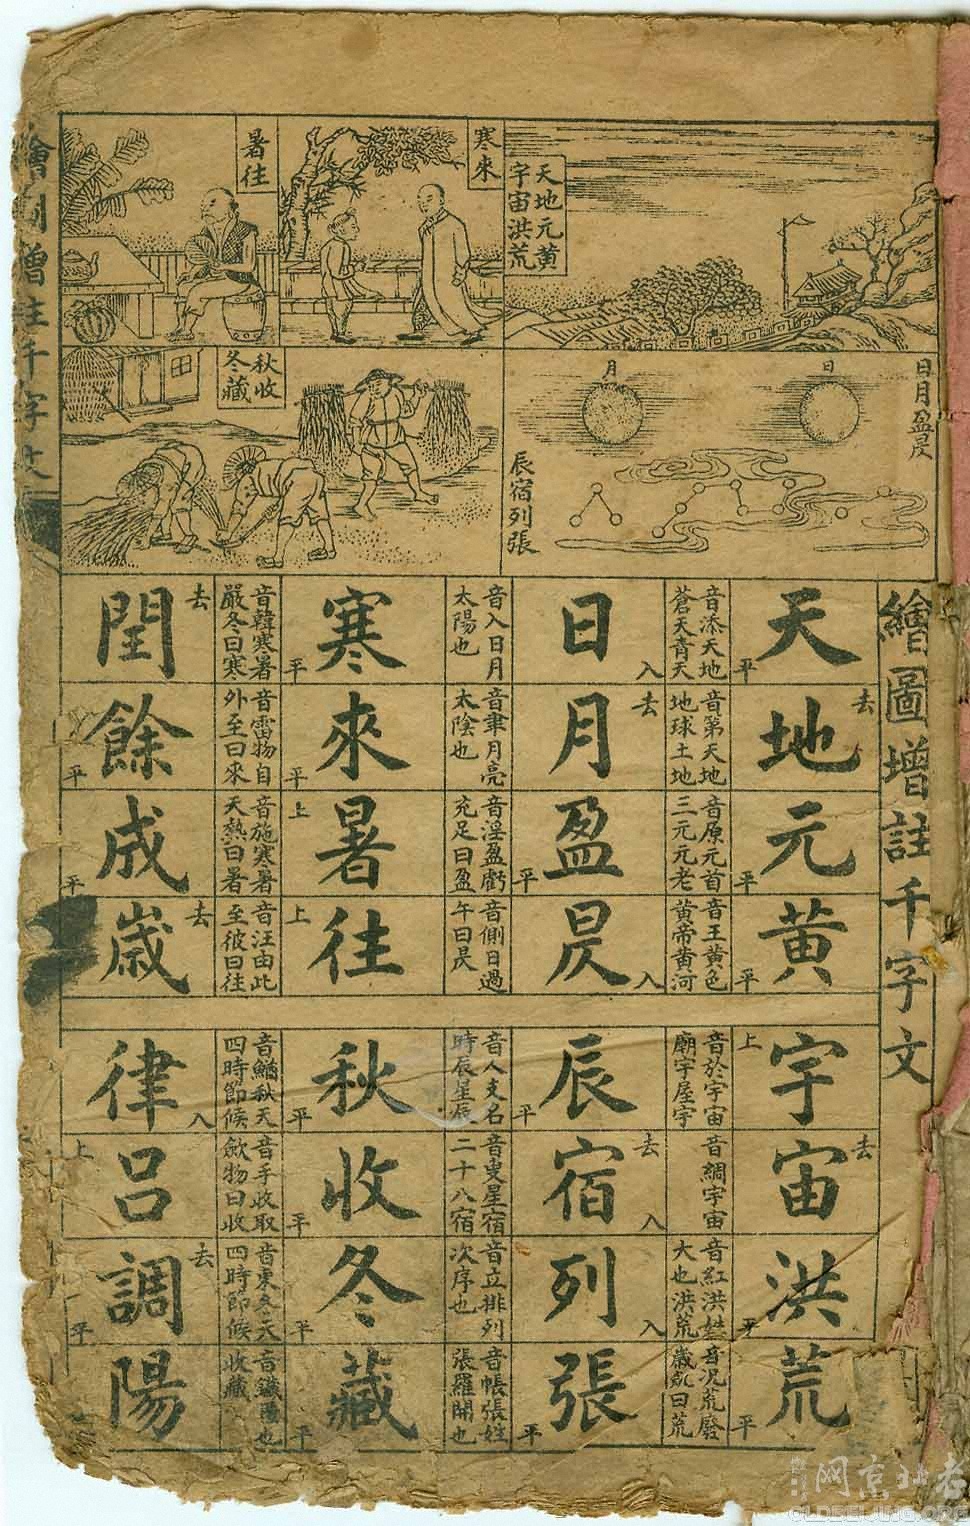 繪圖增註千字文
天地元黃
宇宙洪荒
寒來
暑往
日月盈昃
日
月
辰宿列張
秋收
冬藏
繪圖增註千字文
天 平 音添天地 蒼天青天
地 去 音第天地 地球土地
元 平 音原元首 三元元老
黃 平 音王黃色 黃帝黃河
日 入 音入日月 太陽也
月 去 音聿月亮 太陰也
盈 平 音淫盈虧 充足曰盈
昃 入 音側日過 午曰昃
寒 平 音韓寒暑 嚴冬曰寒
來 平 音雷物自 外至曰來
暑 上 音施寒暑 天熱曰暑
往 上 音汪由此 至彼曰往
閏 去
餘 平
成 平
歲 去
宇 上 音於宇宙 廟宇屋宇
宙 去 音綢宇宙
洪 平 音紅洪姓 大也洪荒
荒 平 音況荒廢 歲凶曰荒
辰 平 音人支名 時辰星辰
宿 去 入 音叟星宿 二十八宿
列 入 音立排列 次序也
張 平 音帳張姓 張羅開也
秋 平 音鰌秋天 四時節候
收 平 音手收取 斂物曰收
冬 平 音東冬天 四時節候
藏 平 收藏
律 入
呂 上
調 去 平
陽
网京北老
OLDBEIJING.ORG